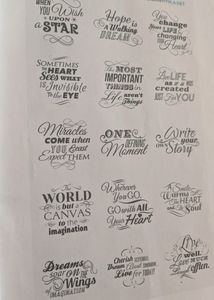 WHEN
YOU Wish
UPON
a STAR
Hope
is
a WALKING
DREAM
You
change
Your LIFE
by
changing
Your Heart
SOMETIMES
the HEART
SEES WHAT
is Invisible
TO the EYE
The MOST
IMPORTANT
THINGS IN
Life
aren't
Things
Live LIFE
AS IF
it WAS
created
JUST FOR YOU
Miracles
COME WHEN
YOU Least
Expect THEM
ONE
Defining
Moment
Write
your
own
Story
The
WORLD
is but a
CANVAS
TO the
imagination
Wherever
You GO,
GO with ALL
Your Heart
A Smile
the HEART
and Soul
Dreams
soar ON
the
Wings
of
IMAGINATION
Cherish
Dream
Live
FOR TODAY
Live
well,
Love
Laugh
often.